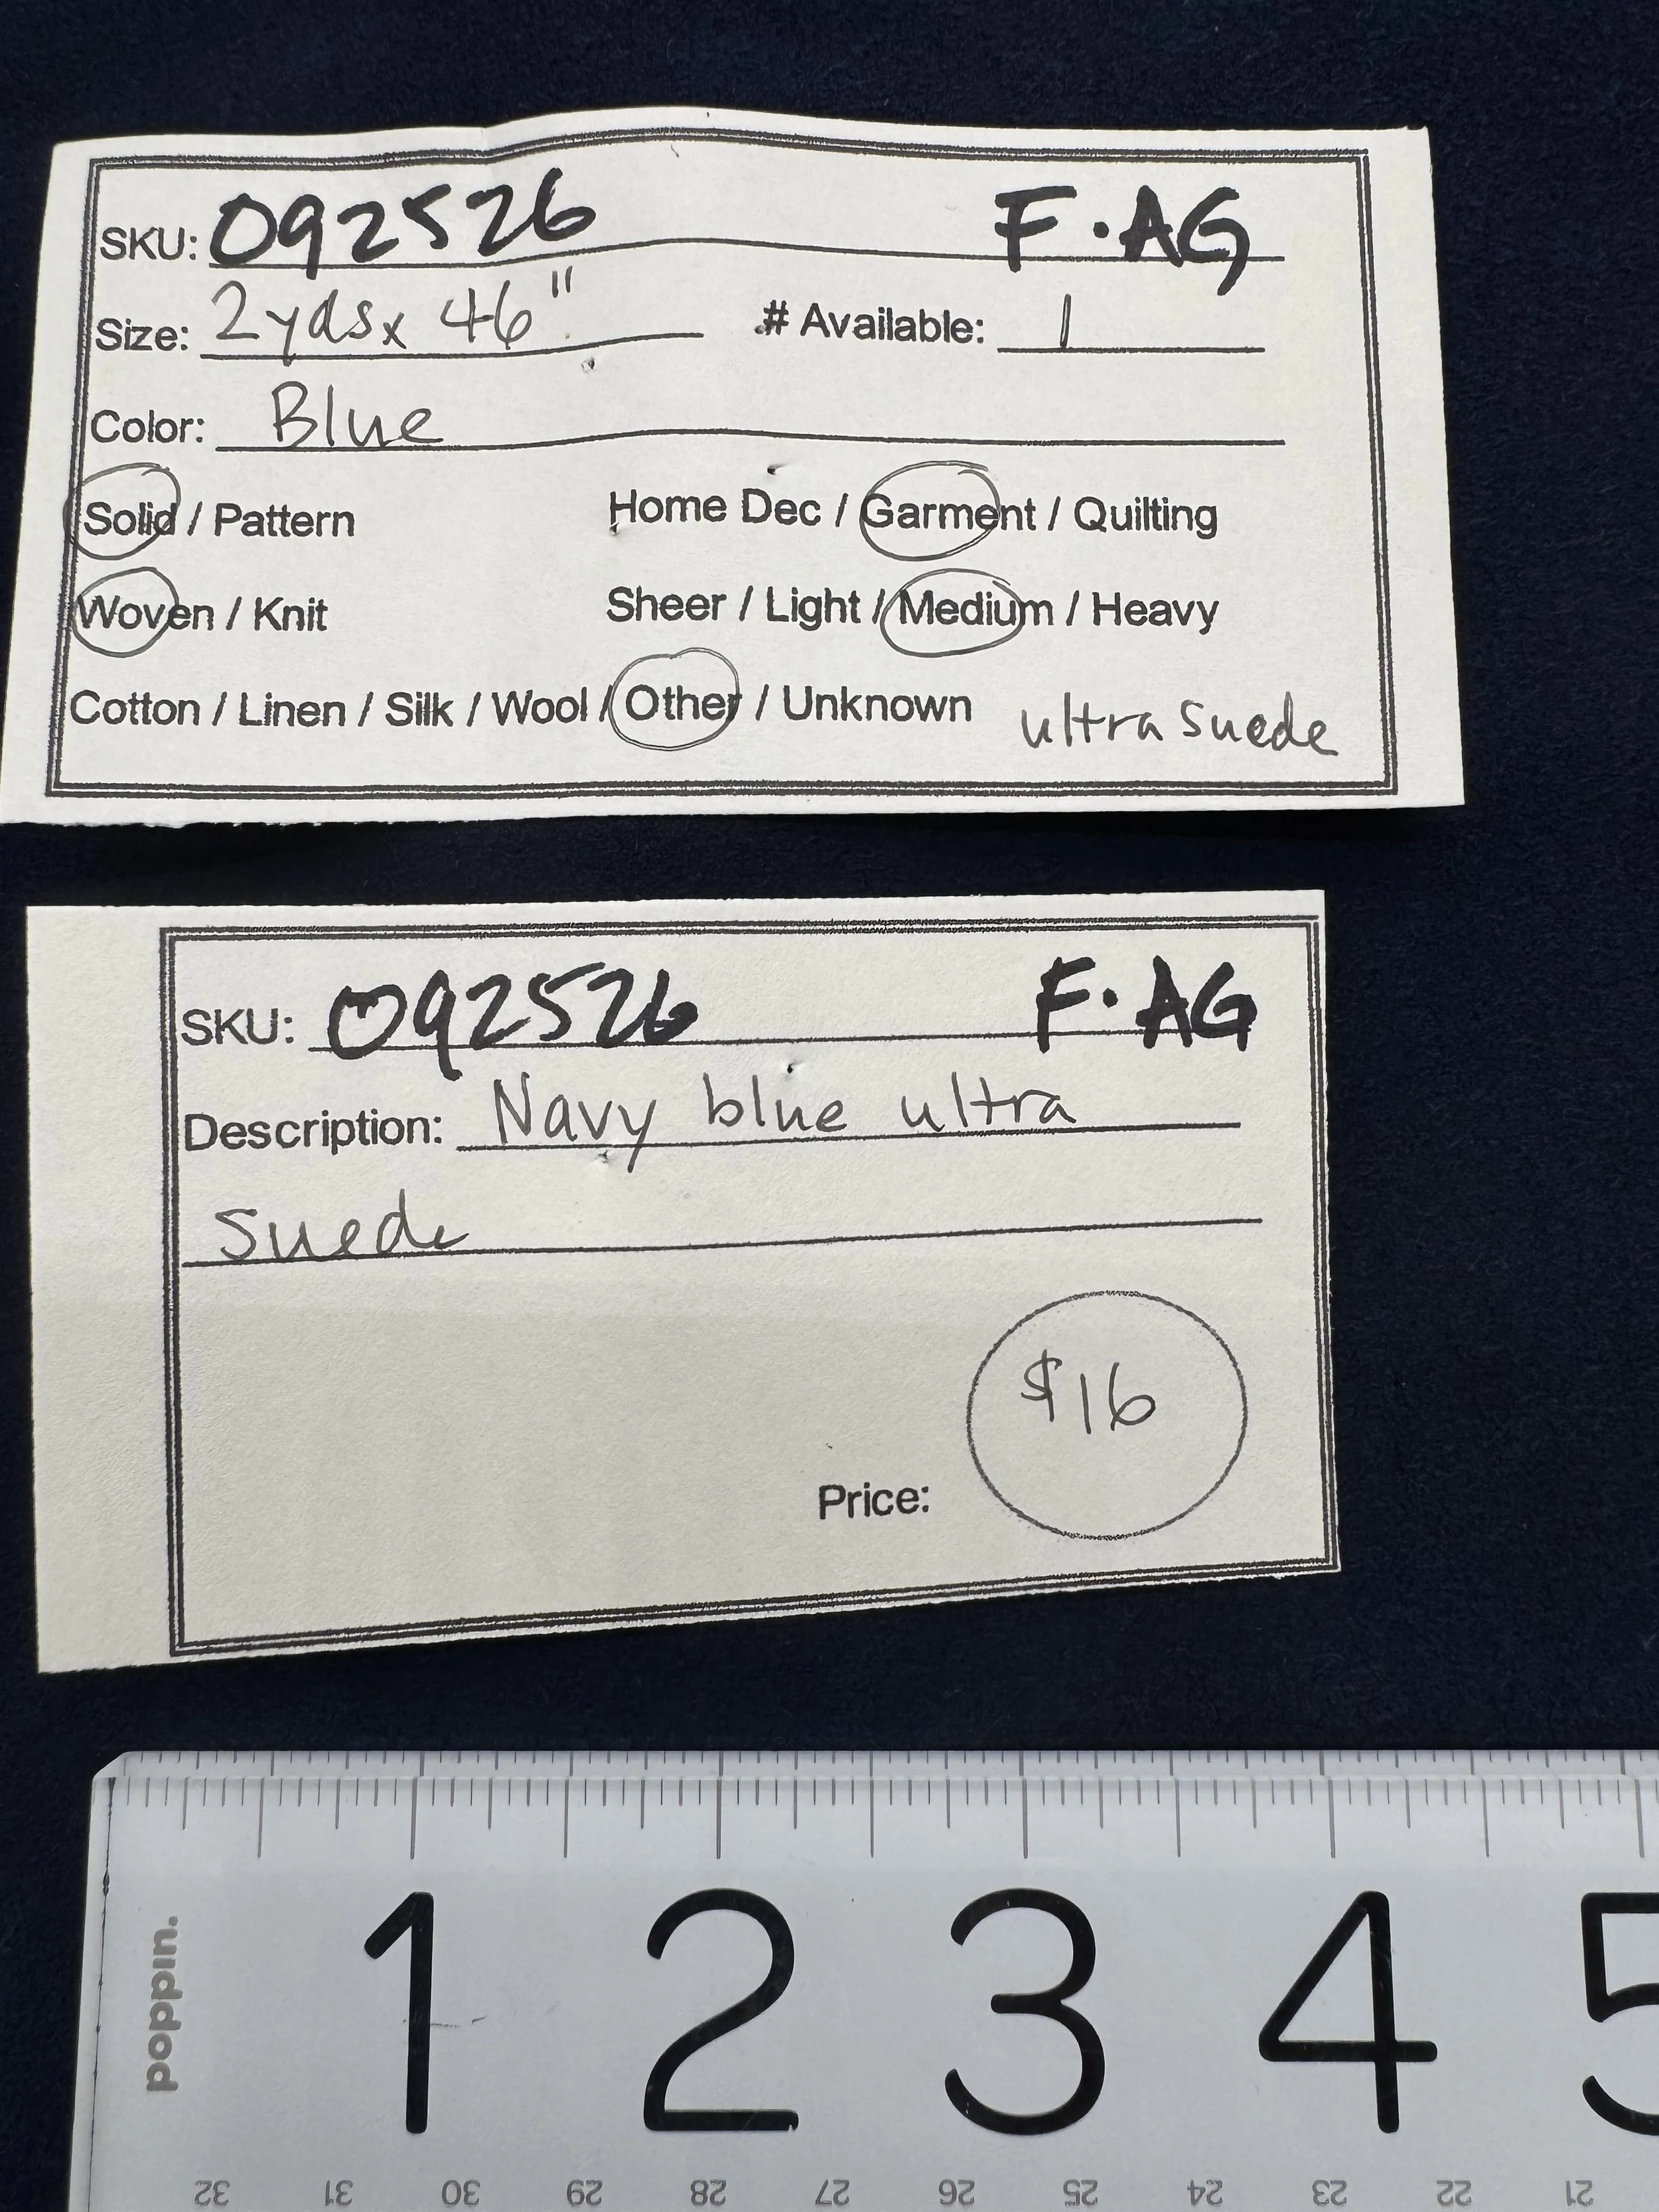 SKU: 092526 F.AG
Size: 2yds x 46" # Available: 1
Color: Blue
Solid / Pattern Home Dec / Garment / Quilting
Woven / Knit Sheer / Light / Medium / Heavy
Cotton / Linen / Silk / Wool / Other / Unknown ultra suede
SKU: 092526 F.AG
Description: Navy blue ultra
suede
$16
Price:
poppin.
1 2 3 4 5
32 31 30 29 28 27 26 25 24 23 22 21